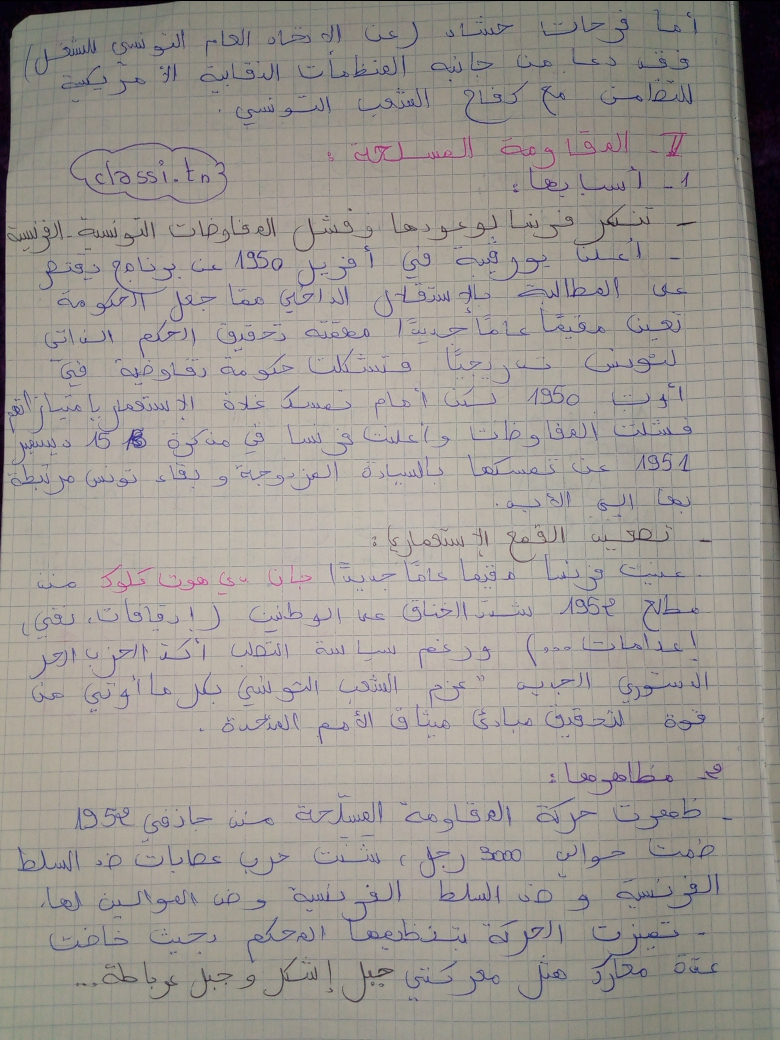 أما فرحات حشاد (عن الاتحاد العام التونسي للشغل)
فقد دعا من جانبه المنظمات النقابية الأمريكية
للتظامن مع كفاح الشعب التونسي.
II- المقاومة المسلحة :
classi.tn
1- أسبابها:
- تنكر فرنسا لوعودها وفشل المفاوضات التونسية-الفرنسية
- أعلن بورقيبة في أفريل 1950 عن برنامج يقتصر
على المطالبة بالاستقلال الداخلي مما جعل الحكومة
تعين مقيمًا عامًا جديدًا مهمته تحقيق الحكم الذاتي
لتونس تدريجيًا فتشكلت حكومة تفاوضية في
أوت 1950 لكن أمام تمسك غلاة الإستعمار بإمتيازاتهم
فشلت المفاوضات وأعلنت فرنسا في مذكرة 15 ديسمبر
1951 عن تمسكها بالسيادة المزدوجة وبقاء تونس مرتبطة
بها إلى الأبد.
- تصعيد القمع الإستعماري:
. عينت فرنسا مقيما عاما جديدًا جان دي هوت كلوك منذ
مطلع 1952 شدد الخناق على الوطنيين (إيقافات، نفي،
إعدامات...) ورغم سياسة التصلب أكد الحزب الحر
الدستوري الجديد "عزم الشعب التونسي بكل ما أوتي من
قوة لتحقيق مبادئ ميثاق الأمم المتحدة.
2- مظاهرها:
- ظهرت حركة المقاومة المسلّحة منذ جانفي 1952
ضمت حوالي 3000 رجل، شنت حرب عصابات ضد السلط
الفرنسية و ضد السلط الفرنسية و ضد الموالين لها.
- تميزت الحركة بتنظيمها المحكم بحيث خاضت
عدة معارك مثل معركتي جبل إشكل وجبل عرباطة...